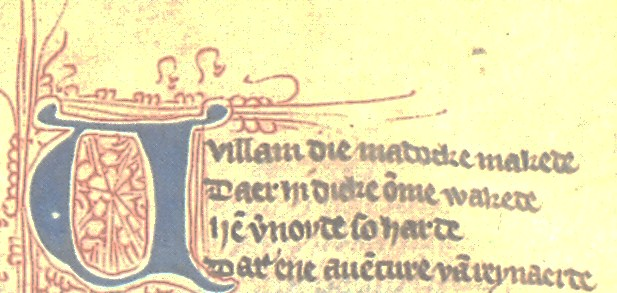 Uvillam die madocke makede
Daer hi dicke ōme wakede
Hē v̄noyde ſo harde
Dat ene auēture vā reynaerde